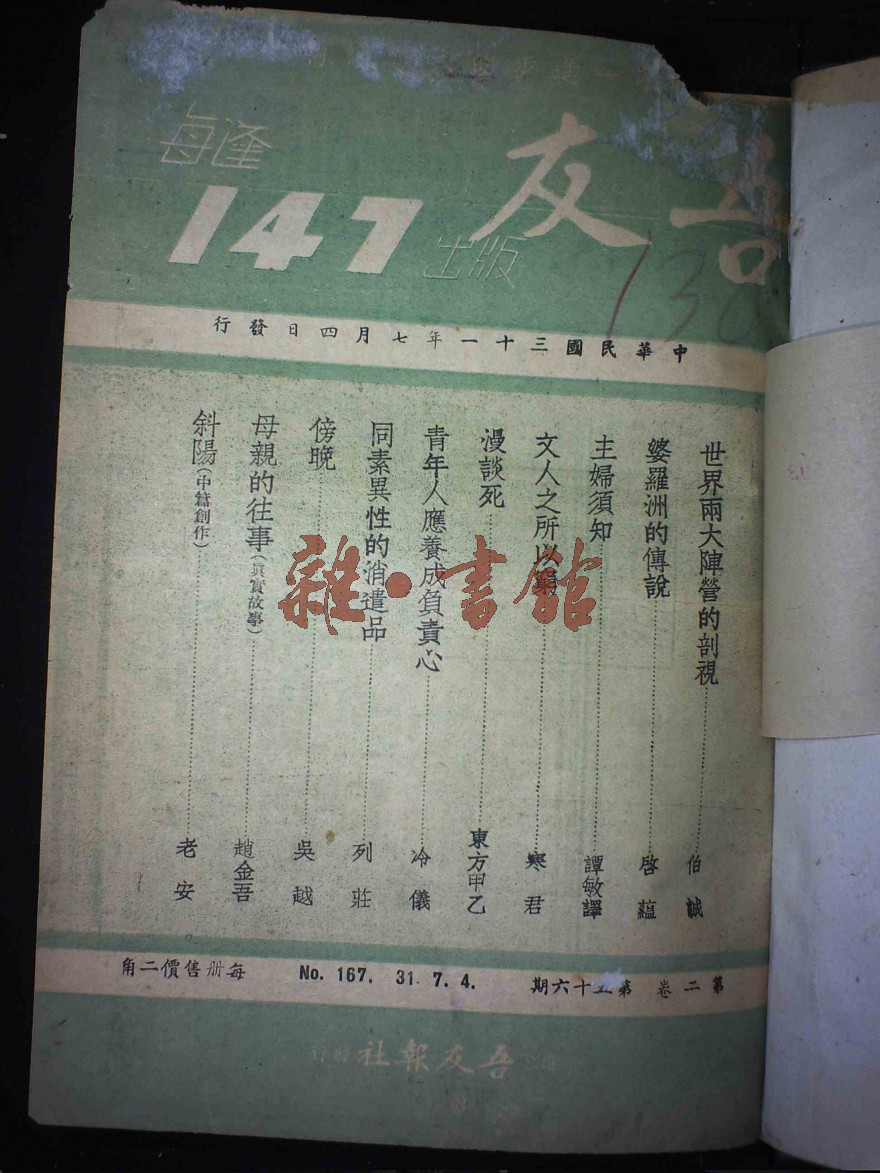 一進步
吾友
每逢
147
出版
中華民國三十一年七月四日發行
世界兩大陣營的剖視 伯誠
婆羅洲的傳說 啓蘊
主婦須知 譚敏譯
文人之所以窮 寒君
漫談死 東方甲乙
青年人應養成負責心 冷儀
同素異性的消遣品 列莊
傍晚 吳越
母親的往事(真實故事) 趙金吾
斜陽(中篇創作) 老安
雜·書館
第二卷 第五十六期
No. 167. 31. 7. 4.
每册售價二角
吾友報社發行
130